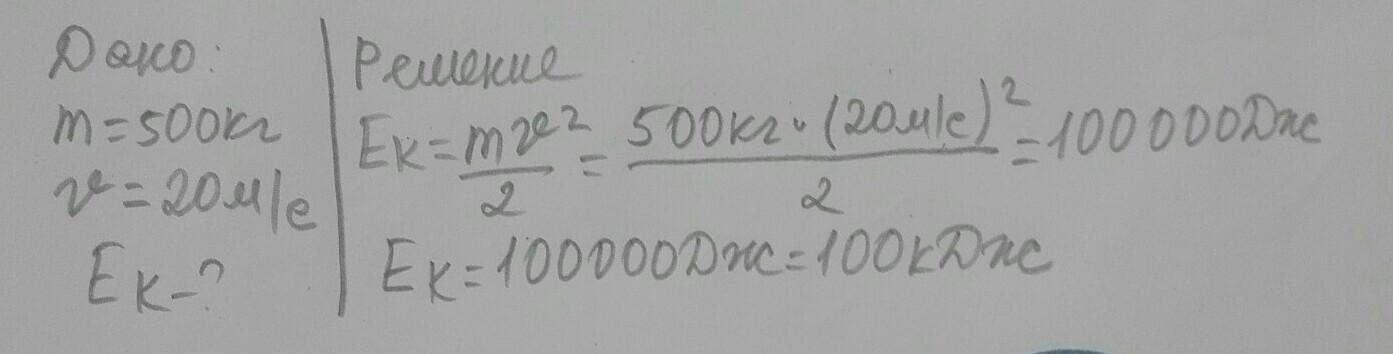 Дано:
m=500кг
v=20м/с
Eк-?
Решение
Eк=mv²/2=500кг·(20м/с)²/2=100000Дж
Eк=100000Дж=100кДж